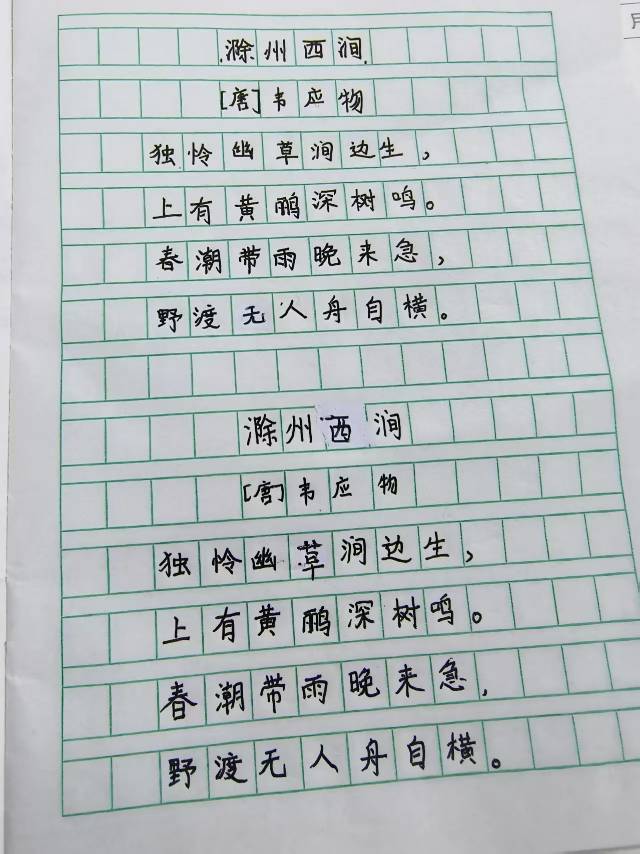 滁州西涧
[唐]韦应物
独怜幽草涧边生，
上有黄鹂深树鸣。
春潮带雨晚来急，
野渡无人舟自横。
滁州西涧
[唐]韦应物
独怜幽草涧边生，
上有黄鹂深树鸣。
春潮带雨晚来急，
野渡无人舟自横。